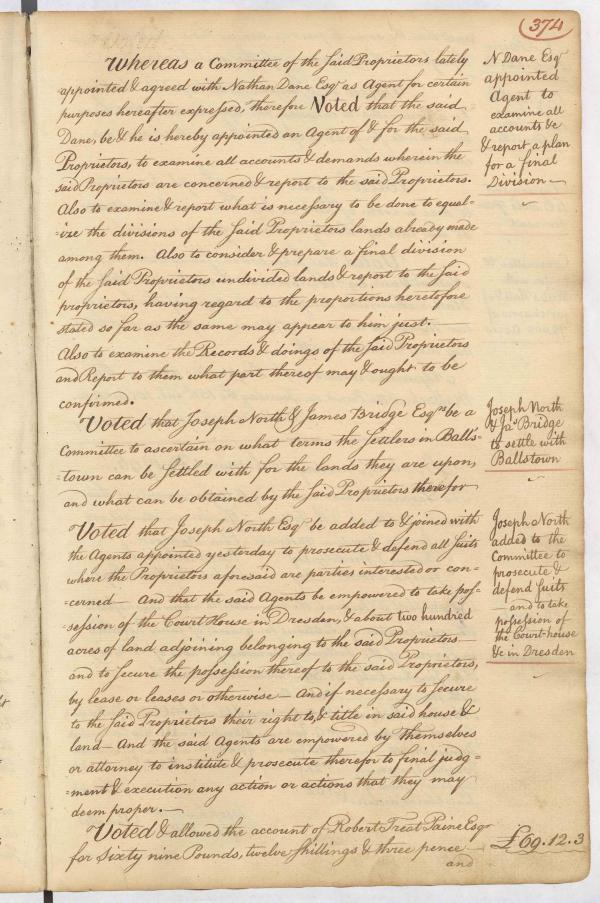 374
Whereas a Committee of the said Proprietors lately
appointed & agreed with Nathan Dane Esqr as Agent for certain
purposes hereafter expressed, therefore Voted that the said
Dane, be & he is hereby appointed an Agent of & for the said
Proprietors, to examine all accounts & demands wherein the
said Proprietors are concerned & report to the said Proprietors.
Also to examine & report what is necessary to be done to equal-
=ize the divisions of the said Proprietors lands already made
among them. Also to consider & prepare a final division
of the said Proprietors undivided lands & report to the said
proprietors, having regard to the proportions heretofore
stated so far as the same may appear to him just.
Also to examine the Records & doings of the said Proprietors
and Report to them what part thereof may & ought to be
confirmed.
N Dane Esqr
appointed
Agent to
examine all
accounts &c
& report a plan
for a final
Division
Voted that Joseph North & James Bridge Esqrs be a
Committee to ascertain on what terms the settlers in Balls-
=town can be settled with for the lands they are upon,
and what can be obtained by the said Proprietors therefor
Joseph North
& Jas Bridge
to settle with
Ballstown
Voted that Joseph North Esqr be added to & joined with
the Agents appointed yesterday to prosecute & defend all suits
where the Proprietors aforesaid are parties interested or con-
=cerned — And that the said Agents be empowered to take pos-
=session of the Court House in Dresden, & about two hundred
acres of land adjoining belonging to the said Proprietors
and to secure the possession thereof to the said Proprietors,
by lease or leases or otherwise — And if necessary to secure
to the said Proprietors their right to, & title in said house &
land — And the said Agents are empowered by themselves
or attorney to institute & prosecute therefor to final judg-
=ment & execution any action or actions that they may
deem proper. —
Joseph North
added to the
Committee to
prosecute &
defend suits
— and to take
possession of
the Court-house
&c in Dresden
Voted & allowed the account of Robert Treat Paine Esqr
for Sixty nine Pounds, twelve shillings & three pence
£69.12.3
and